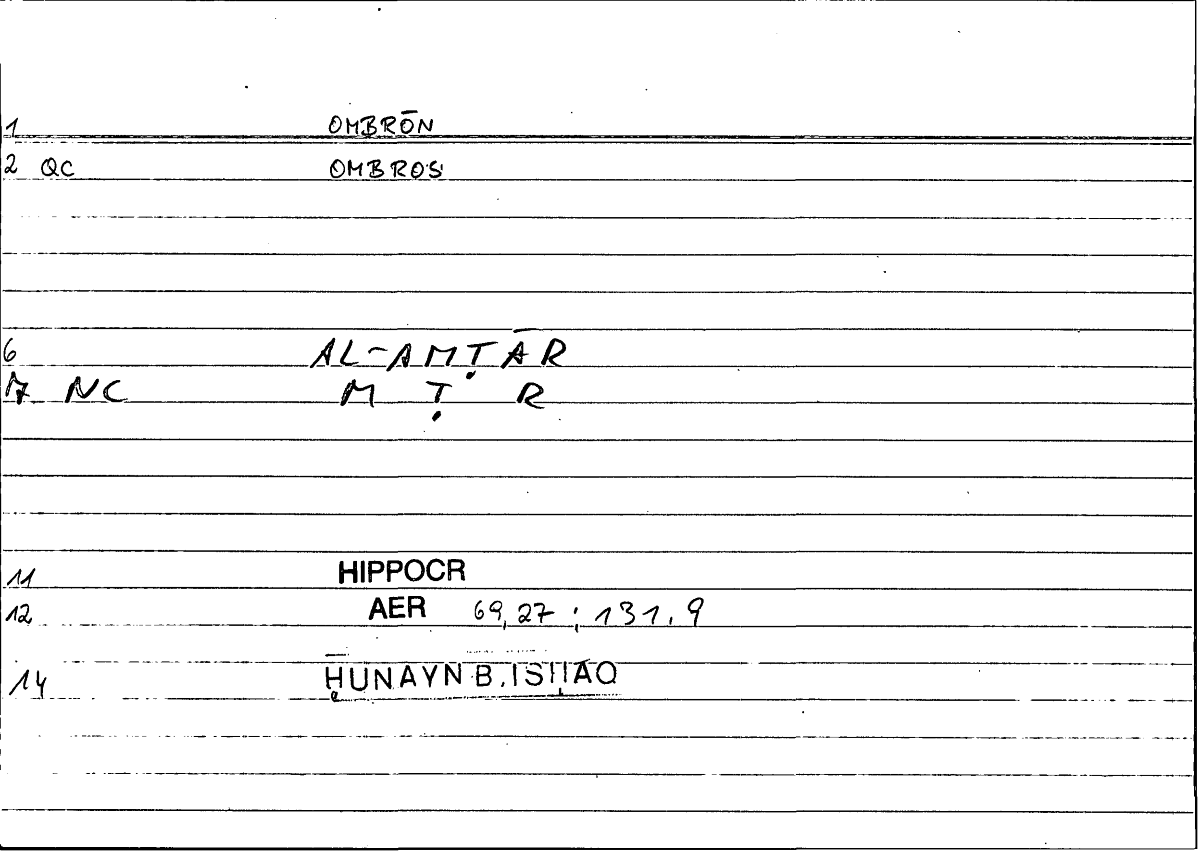 1 OMBRŌN
2 QC OMBROS
6 AL-AMṬĀR
7 NC M Ṭ R
11 HIPPOCR
12 AER 69,27 ; 131,9
14 ḤUNAYN B. ISḤĀQ